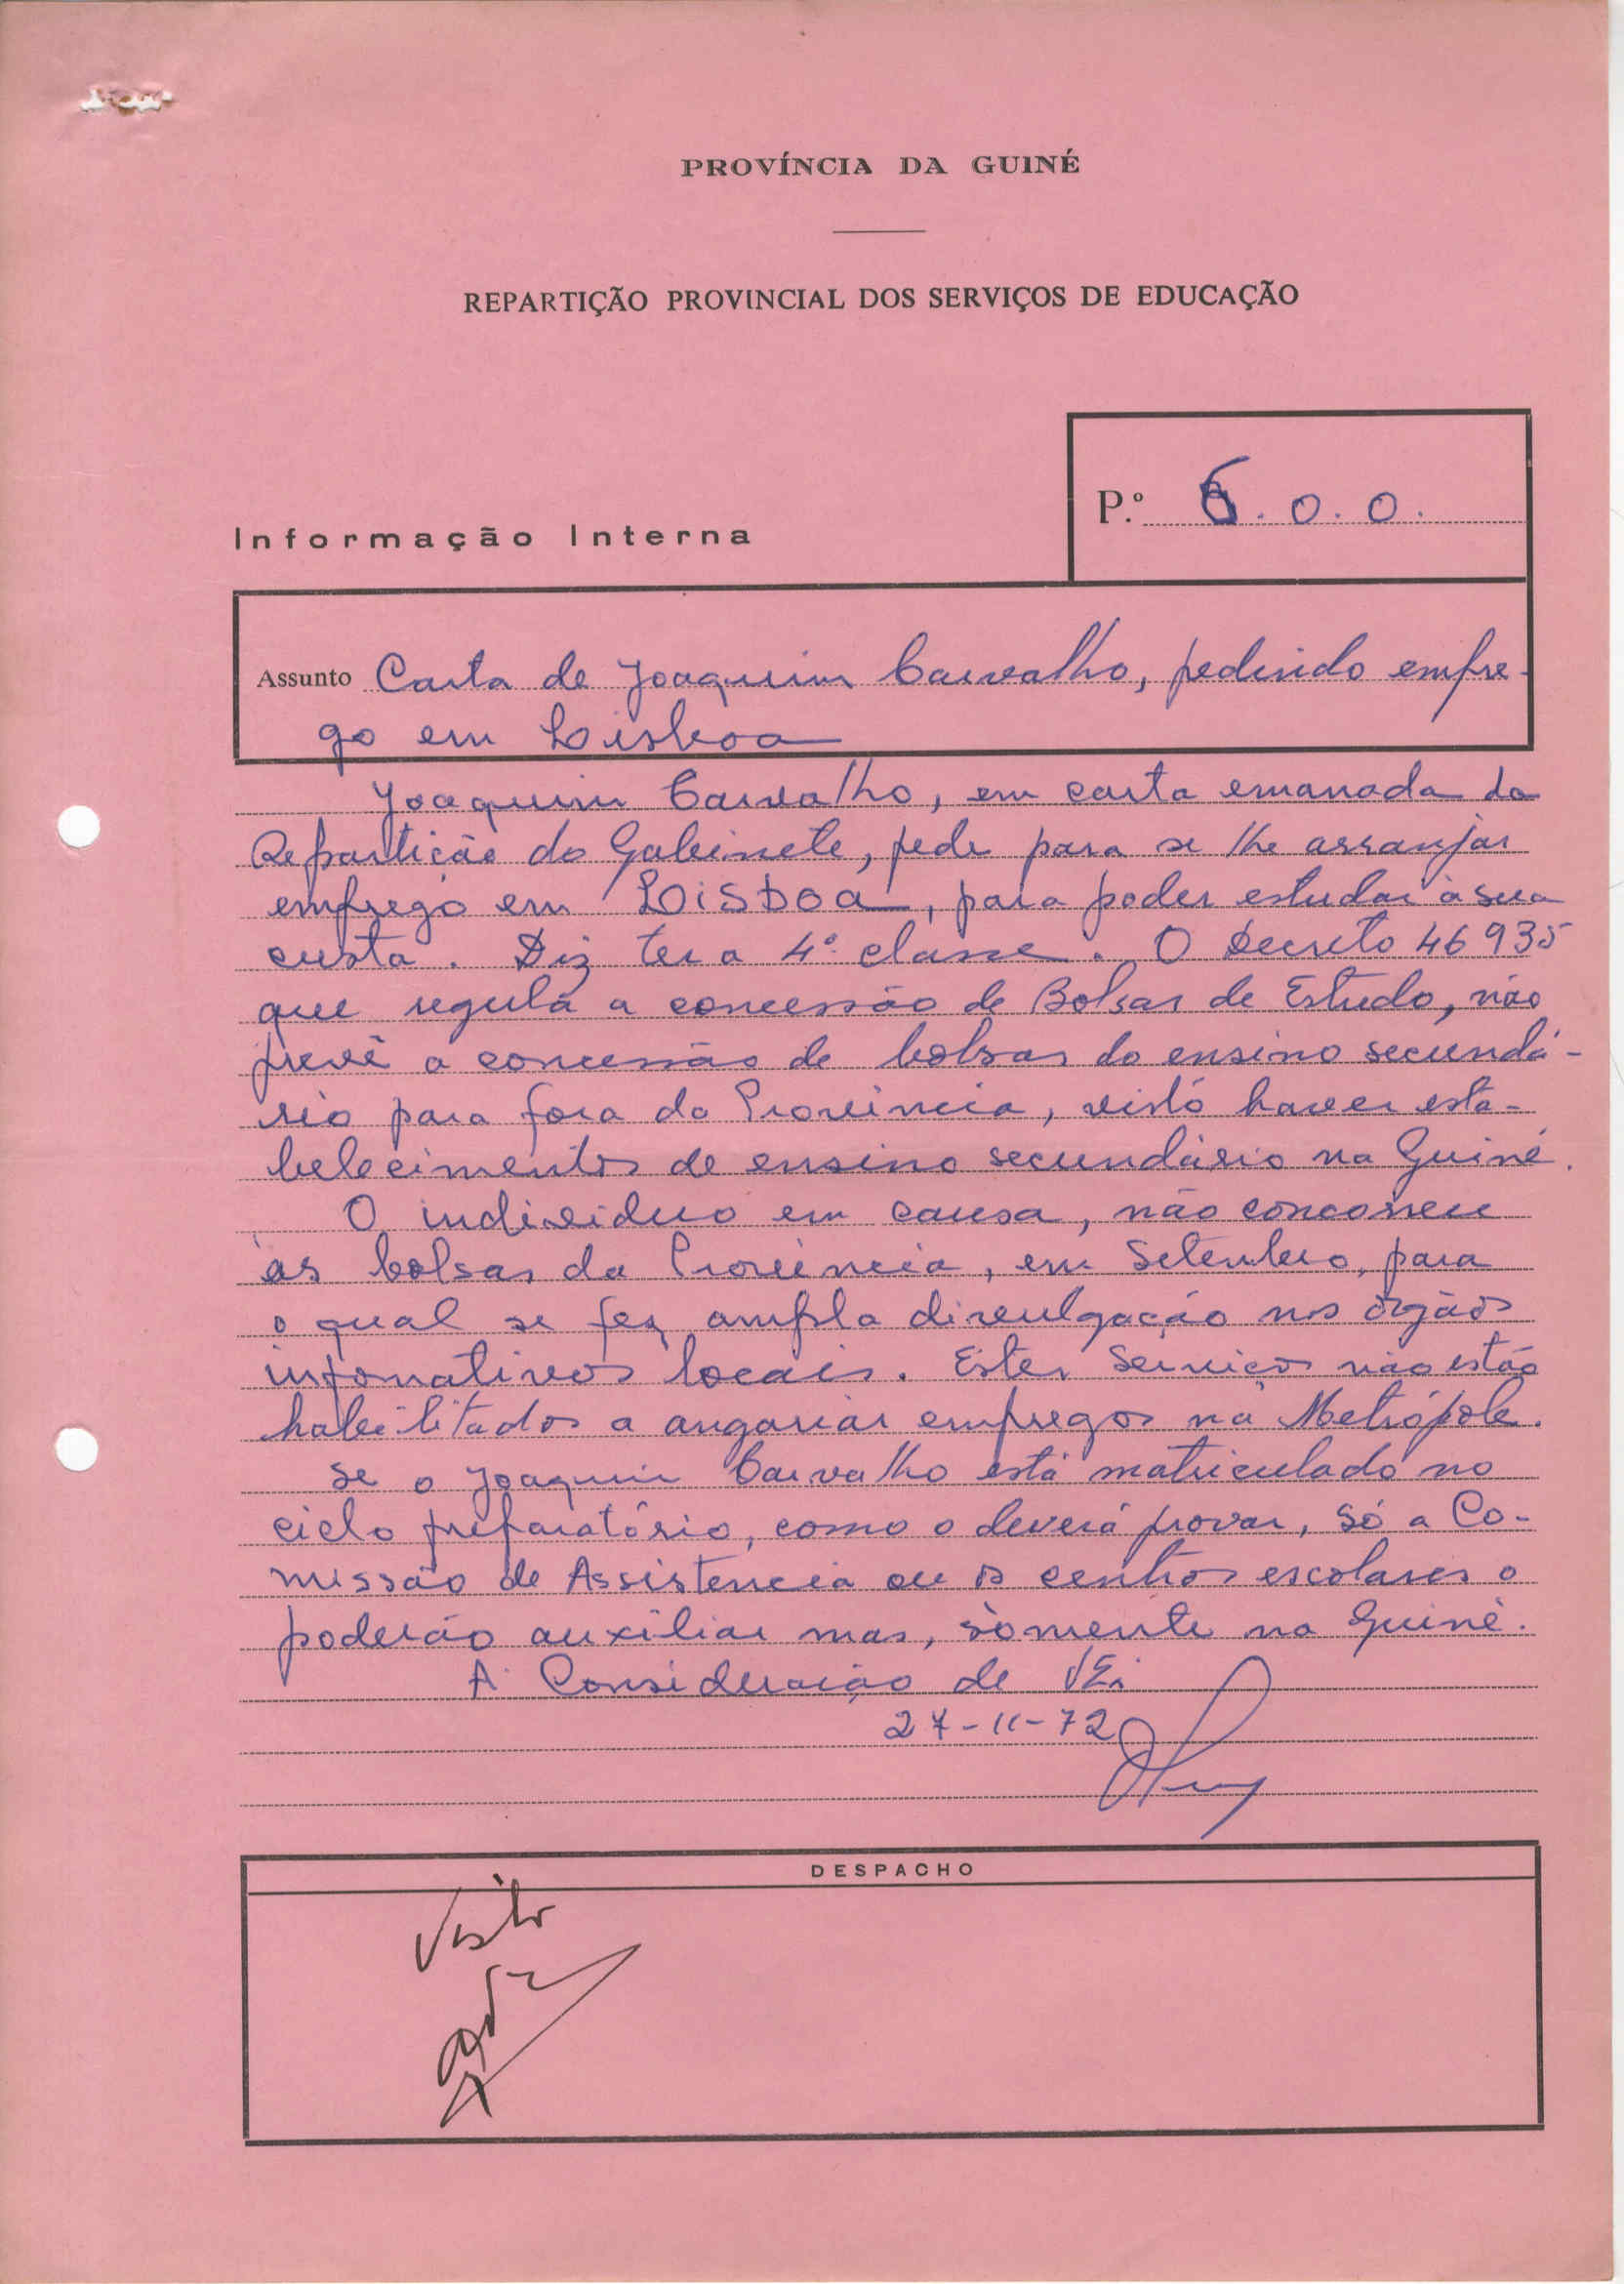 PROVÍNCIA DA GUINÉ
REPARTIÇÃO PROVINCIAL DOS SERVIÇOS DE EDUCAÇÃO
P.º 6.0.0.
Informação Interna
Assunto Carta de Joaquim Carvalho, pedindo empre-
go em Lisboa
Joaquim Carvalho, em carta emanada da
Repartição do Gabinete, pede para se lhe arranjar
emprego em Lisboa, para poder estudar à sua
custa. Diz ter a 4ª classe. O Decreto 46935
que regula a concessão de Bolsas de Estudo, não
prevê a concessão de bolsas do ensino secundá-
rio para fora da Província, visto haver esta-
belecimentos de ensino secundário na Guiné.
O individuo em causa, não concorreu
às bolsas da Província, em Setembro, para
o qual se fez ampla divulgação nos órgãos
informativos locais. Estes Serviços não estão
habilitados a angariar empregos na Metrópole.
Se o Joaquim Carvalho está matriculado no
ciclo preparatório, como o deverá provar, só a Co-
missão de Assistencia ou os centros escolares o
poderão auxiliar mas, sòmente na Guiné.
A Consideração de V.Ex.
27-11-72
DESPACHO
Visto